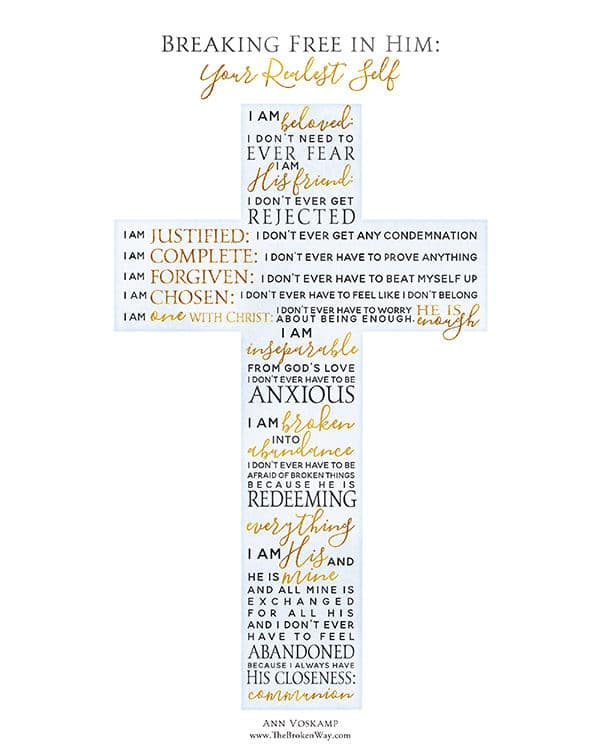 BREAKING FREE IN HIM:
Your Realest Self
I AM beloved:
I DON'T NEED TO
EVER FEAR
I AM
His friend:
I DON'T EVER GET
REJECTED
I AM JUSTIFIED: I DON'T EVER GET ANY CONDEMNATION
I AM COMPLETE: I DON'T EVER HAVE TO PROVE ANYTHING
I AM FORGIVEN: I DON'T EVER HAVE TO BEAT MYSELF UP
I AM CHOSEN: I DON'T EVER HAVE TO FEEL LIKE I DON'T BELONG
I AM one WITH CHRIST: I DON'T EVER HAVE TO WORRY
ABOUT BEING ENOUGH. HE IS
enough
I AM
inseparable
FROM GOD'S LOVE
I DON'T EVER HAVE TO BE
ANXIOUS
I AM broken
INTO
abundance
I DON'T EVER HAVE TO BE
AFRAID OF BROKEN THINGS
BECAUSE HE IS
REDEEMING
everything
I AM His AND
HE IS mine
AND ALL MINE IS
EXCHANGED
FOR ALL HIS
AND I DON'T EVER
HAVE TO FEEL
ABANDONED
BECAUSE I ALWAYS HAVE
HIS CLOSENESS:
communion
ANN VOSKAMP
www.TheBrokenWay.com